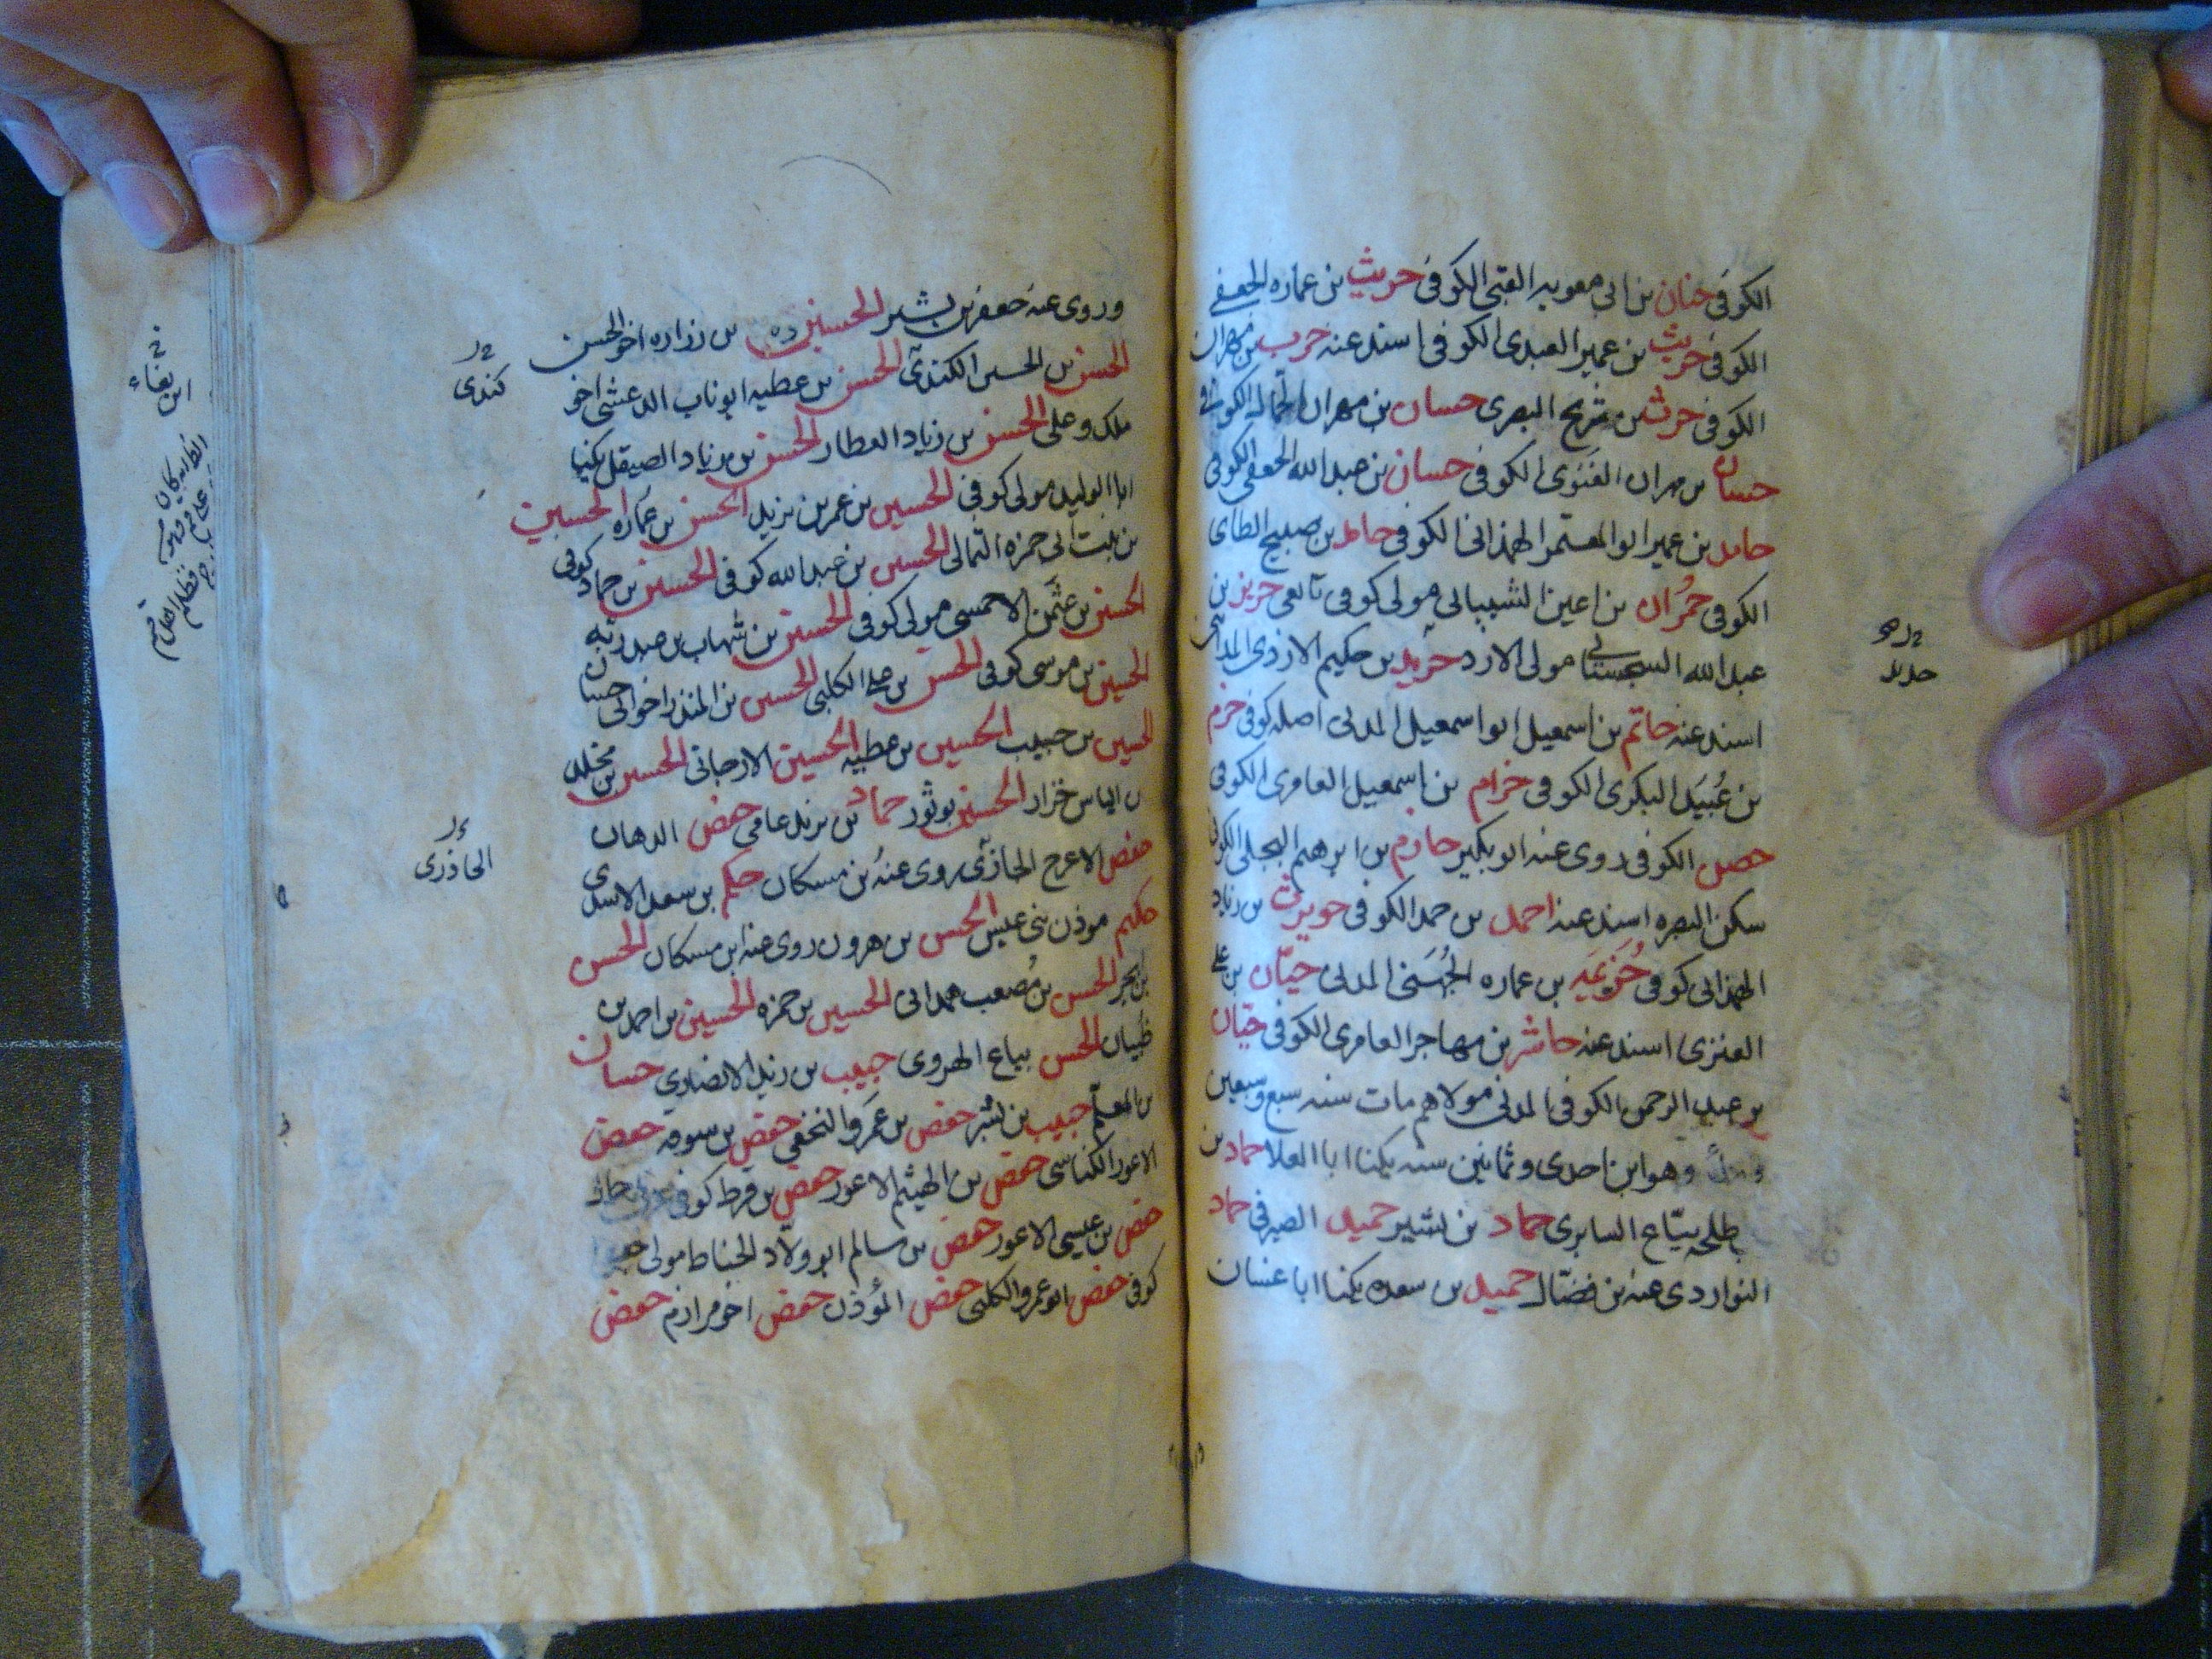 الكوفى حنان بن ابى معويه القبى الكوفى حريث بن عماره الجعفى
الكوفى حريث بن عمير العبدى الكوفى اسند عنه حرب بن مهران
الكوفى حرث بن شريح البصرى حسان بن مهران الجمال الكوفى
حسان بن مهران الغنوى الكوفى حسان بن عبد الله الجعفى الكوفى
حامد بن عمير ابو المعتمر الهمذانى الكوفى حامد بن صبيح الطاى
الكوفى حمران بن اعين الشيبانى مولى كوفى تابعى حريز بن
عبد الله السجستانى مولى الازد حديد بن حكيم الازدى المداينى
اسند عنه حاتم بن اسمعيل ابو اسمعيل المدنى اصله كوفى خرم
بن عبيد البكرى الكوفى خرام بن اسمعيل العامرى الكوفى
الكوفى روى عنه ابو بكير حازم بن ابرهيم البجلى الكوفى
سكن البصره اسند عنه احمد بن حمد الكوفى بن زياد
الهمذانى كوفى خزيمه بن عماره الجهنى المدنى حيان بن على
العنزى اسند عنه حاشر بن مهاجر العامرى الكوفى حيان
بن عبد الرحمن الكوفى المدنى مولاهم مات سنه سبع وسبعين
وهو ابن احدى وثمانين سنه يكنا ابا العلا حماد بن
طلحه بياع السابرى حماد بن بشير حميد الصيرفى حماد
النوا ردى عنه بن فضال حميد بن سعده يكنا ابا غسان
حديد
وروى عنه جعفر بن بشير الحسين بن زراره اخو الحسن
الحسن بن الحسين الكندى الحسن بن عطيه ابو ناب الدغشى اخو
ملك وعلى الحسن بن زياد العطار الحسن بن زياد الصيقل يكنا
ابا الوليد مولى كوفى الحسين بن عمر بن يزيد الحسن بن عماره الحسين
بن بنت ابى حمزه الثمالى الحسين بن عبد الله كوفى الحسين بن حماد كوفى
الحسين بن عثمن الاحمسى مولى كوفى الحسين بن شهاب بن عبد ربه
الحسين بن موسى كوفى الحسن بن على الكلبى الحسين بن المنذر اخو ابى حسان
الحسين بن حبيب الحسين بن عطيه الحسين الارجانى الحسين بن مخلد
بن الياس خزاز الحسين بن ثور حماد بن يزيد عامى حفص الدهان
حفص الاعرج الجازى روى عنه بن مسكان حكم بن سعد الاسدى
حكيم موذن بنى عبس الحسن بن هرون روى عنه ابن مسكان الحسن
بن بحر الحسن بن مصعب همدانى الحسين بن حمزه الحسين بن احمد بن
ظبيان الحسن بياع الهروى حبيب بن زيد الانصارى حسان
بن المعلم حبيب بن بشر حفص بن عمرو النخعى حفص بن سوقه حفص
الاعور الكناسى حفص بن الهيثم الاعور حفص بن قرط كوفى
حفص بن عيسى الاعور حفص بن سالم ابو ولاد الحناط مولى
كوفى حفص ابو عمرو الكلبى حفص المؤذن حفص اخو مرازم حفص
كندى